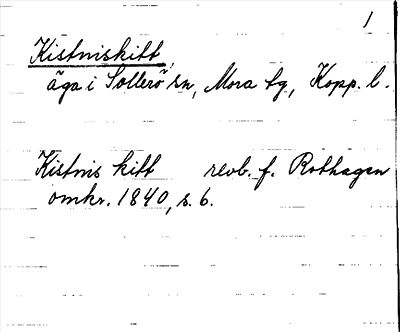 1
Kistniskitt,
äga i Sollerö sn, Mora tg, Kopp. l.
Kistnis kitt revb. f. Rothagen
omkr. 1840, s. 6.